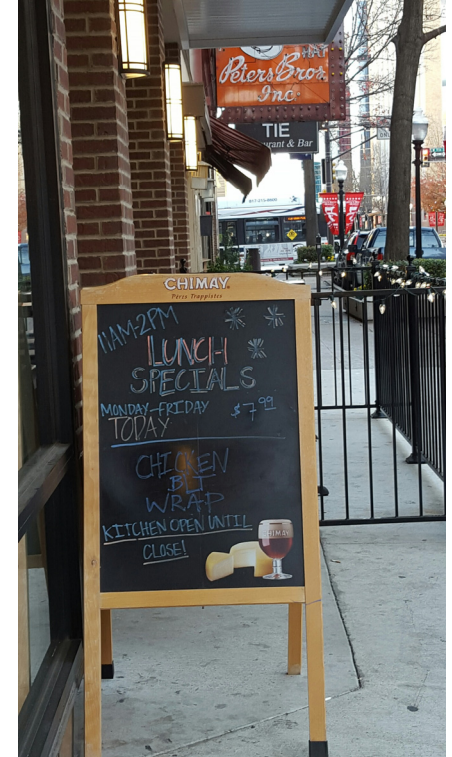 HAT
Peters Bros.
Inc.
TIE
rant & Bar
CHIMAY
Peres Trappistes
11AM-2PM
LUNCH
SPECIALS
MONDAY-FRIDAY $7.99
TODAY
CHICKEN
BLT
WRAP
KITCHEN OPEN UNTIL
CLOSE!
CHIMAY